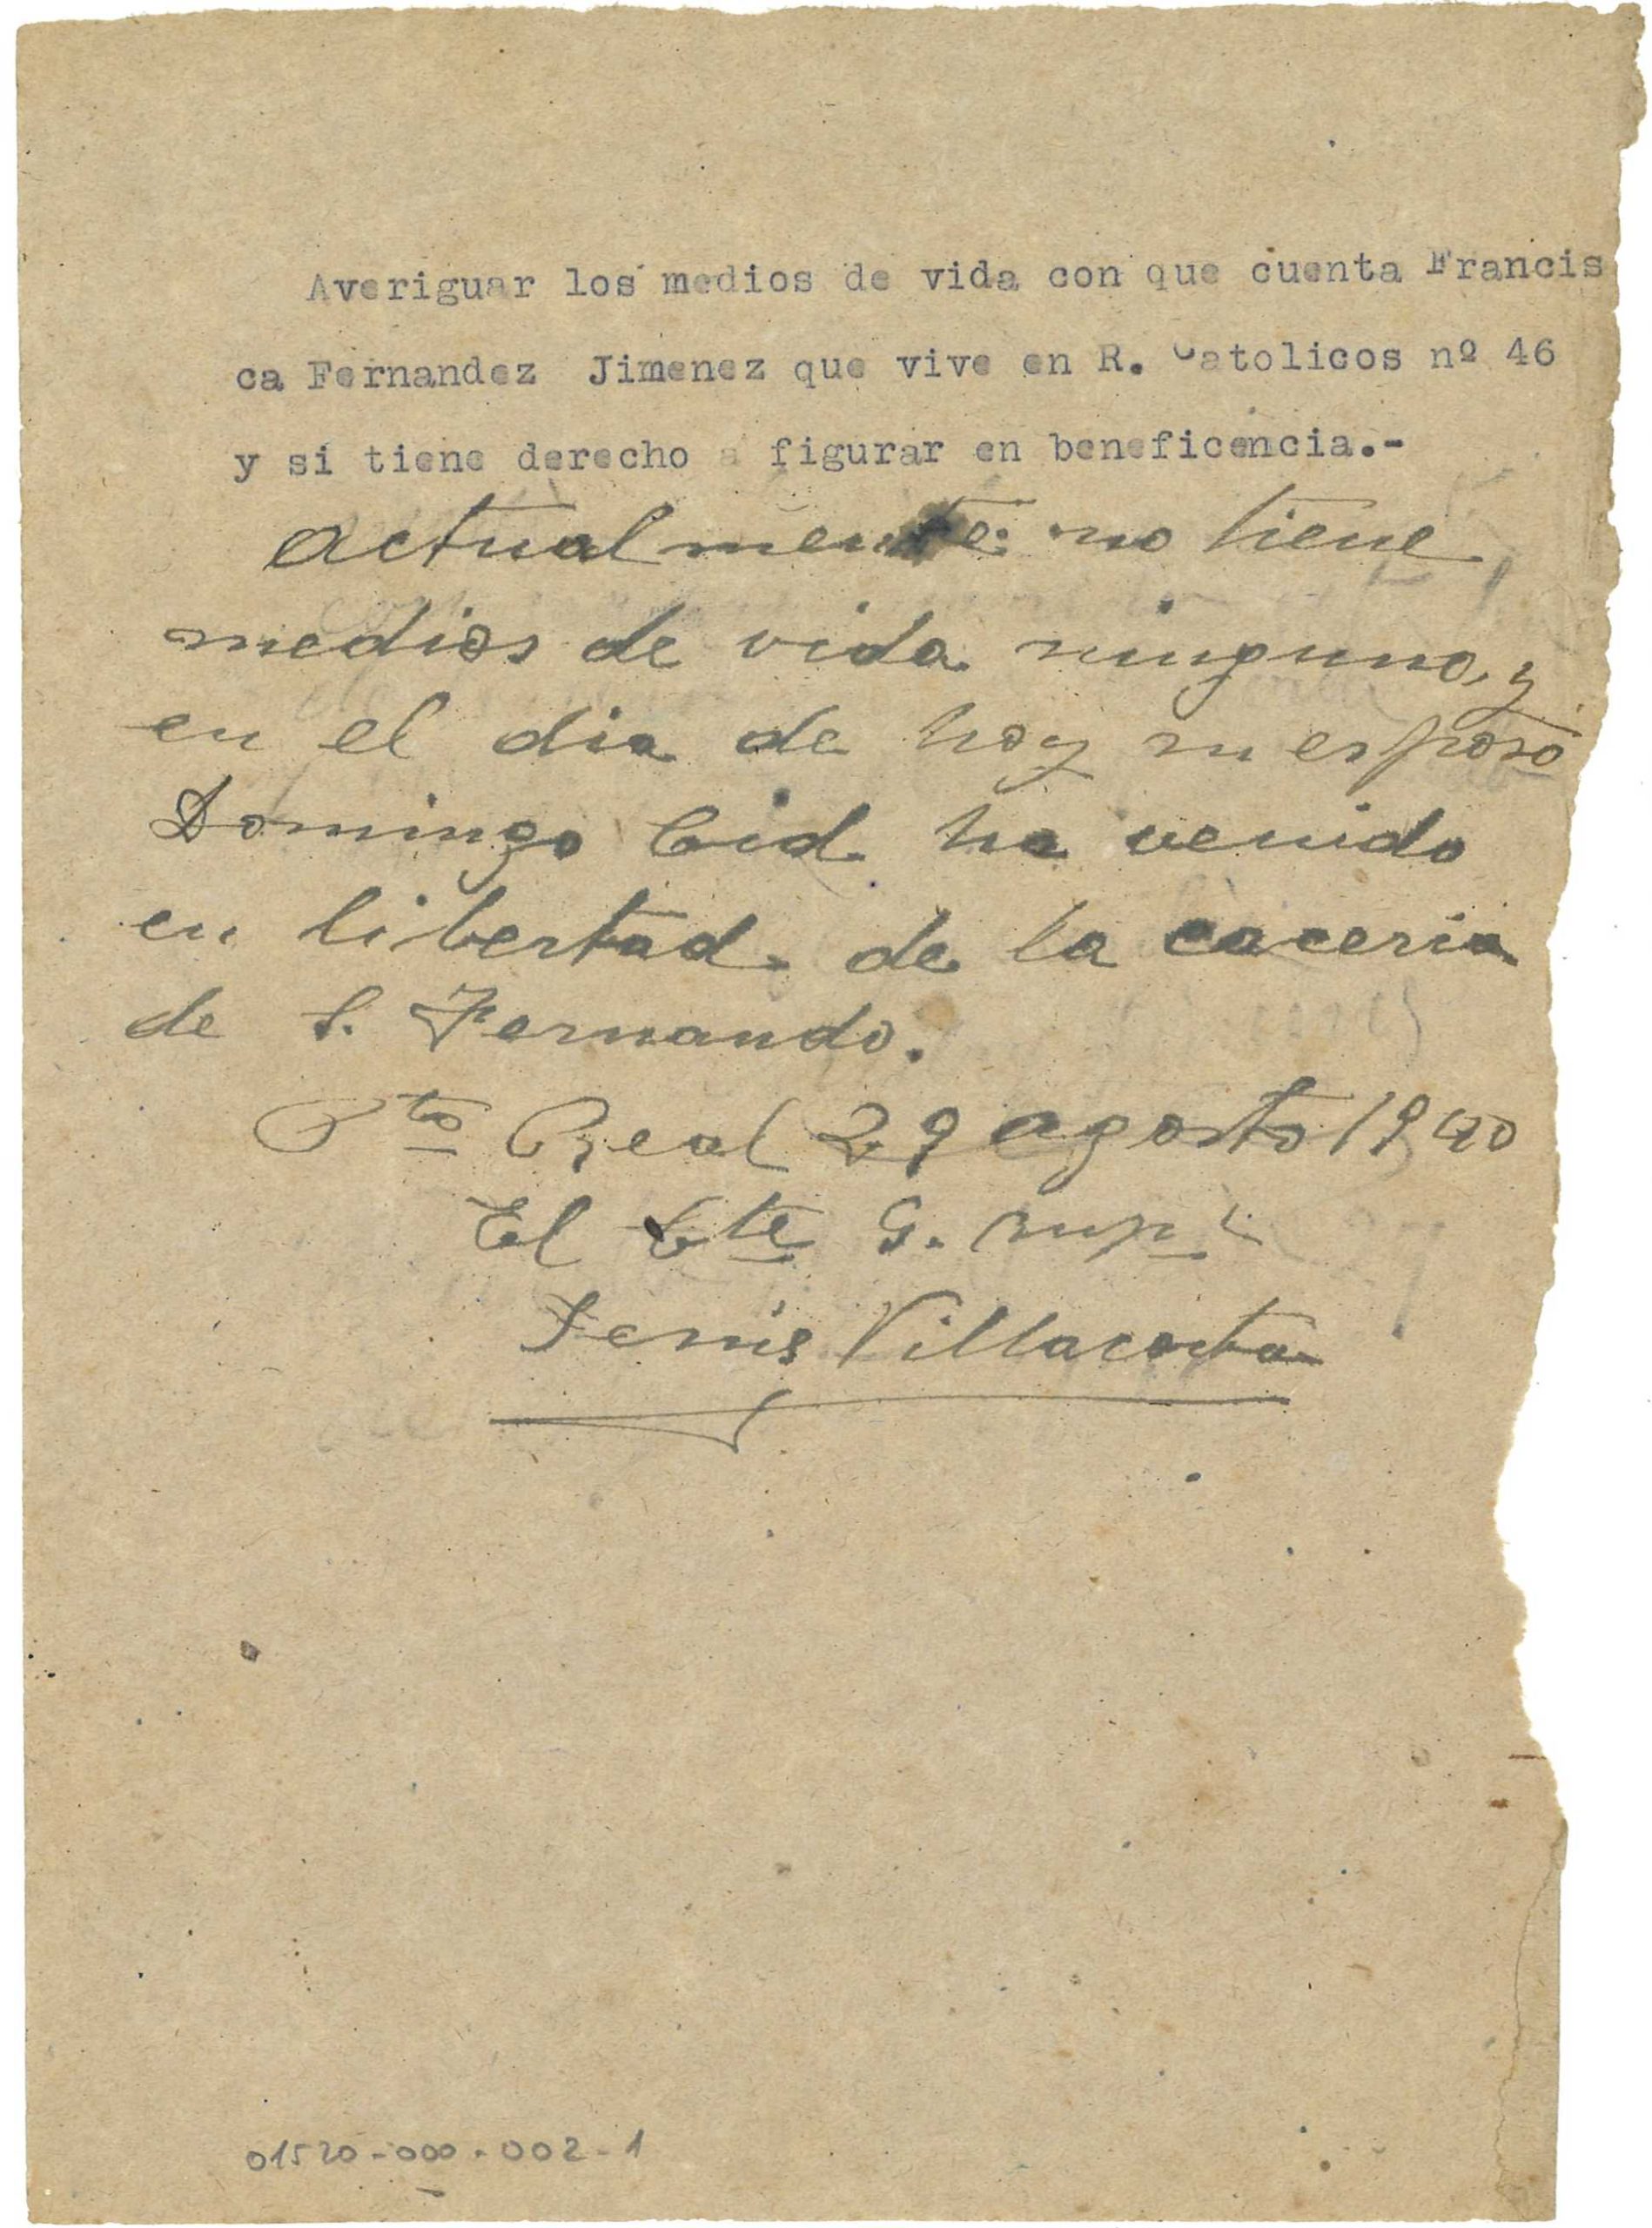 Averiguar los medios de vida con que cuenta Francis
ca Fernandez Jimenez que vive en R. Catolicos nº 46
y si tiene derecho a figurar en beneficencia.-
Actualmente no tiene
medios de vida ninguno, y
en el dia de hoy su esposo
Domingo Cid ha venido
en libertad de la caceria
de S. Fernando.
Pto Real 29 agosto 1940
El G.
Villacorta
01520-000-002-1